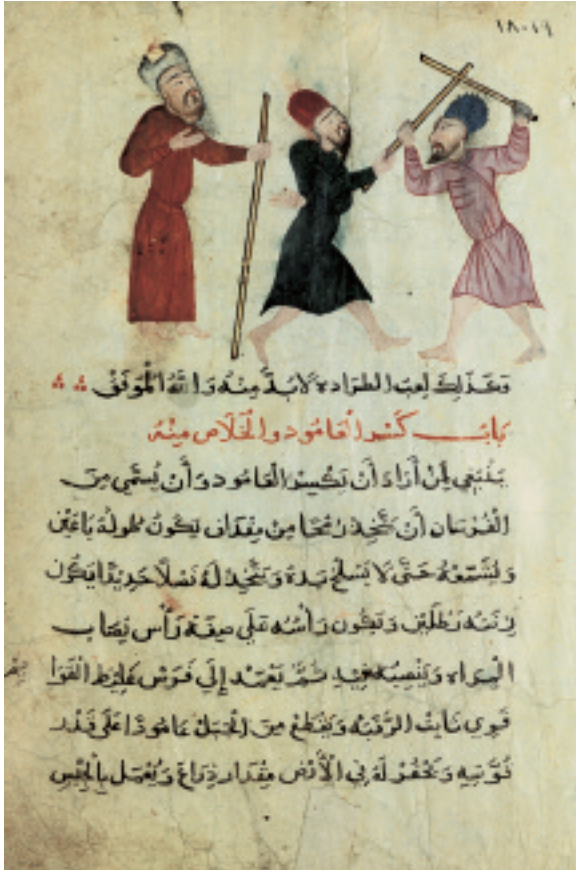 ١٨٠١٩
وكذلك لعب الطراده لا بد منه والله الموفق
باب كسر العامود والخلاص منه
ينبغي لمن أراد أن يكسر العامود وأن يسمى من
الفرسان أن يتخذ رمحا من مران يكون طوله باعين
ويشمعه حتى لا يسلخ يده ويتخذ له نصلا حديدا يكون
زنته رطلين ويكون رأسه على صفة رأس
ثم يعمد إلى فرس غليظ القوا
قوي ثابت الرقبه ويقطع من الجبل عامودا على قدر
قوته ويحفر له في الأرض مقدار ذراع ويعمل بالجبس